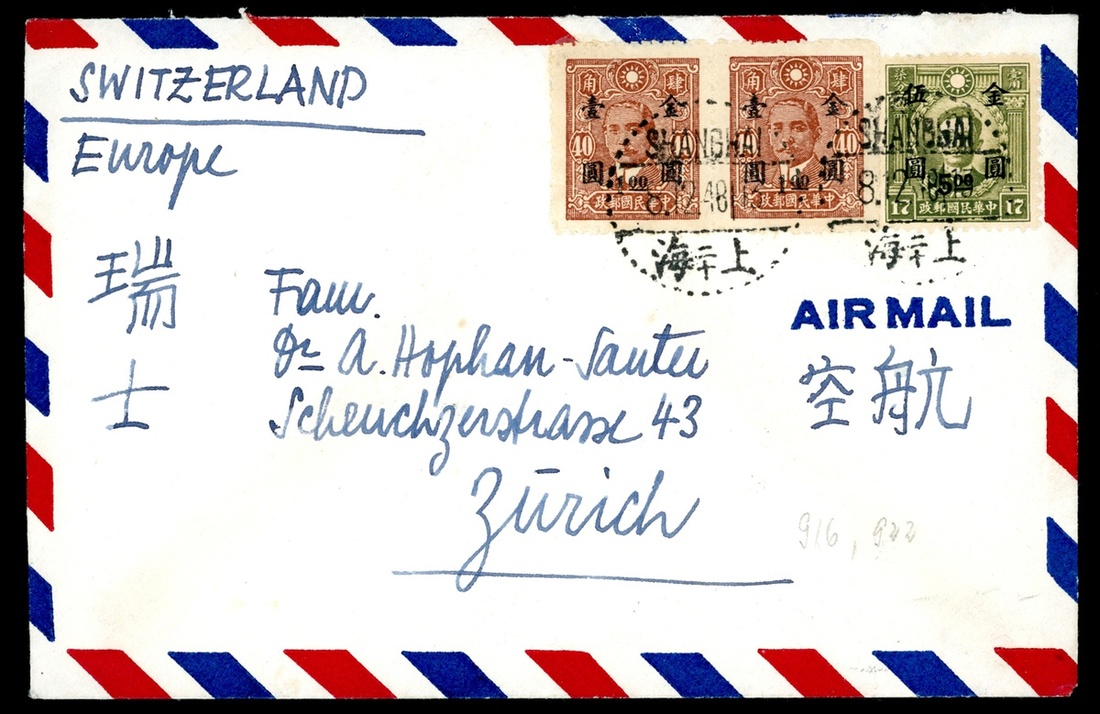 SWITZERLAND
Europe
瑞士
Fam.
Dr A. Hophan-Sauter
Scheuchzerstrasse 43
Zürich
AIR MAIL
空航
角 肆
壹 金
40 40
圓 圓
1 00
政郵國民華中
角 肆
壹 金
40 40
圓 圓
1 00
政郵國民華中
伍 金
圓 圓
5 00
17 政郵國民華中 17
SHANGHAI
8.12.48
海二上
SHANGHAI
8.12
海二上
916, 922